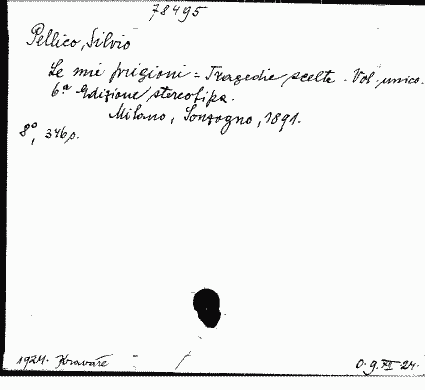 78495
Pellico, Silvio
Le mie prigioni = Tragedie scelte. Vol. unico.
6ª Edizione stereotipa.
Milano, Sonzogno, 1891.
8°, 346 p.
1924. Kravaře / O. 9. XII 24.